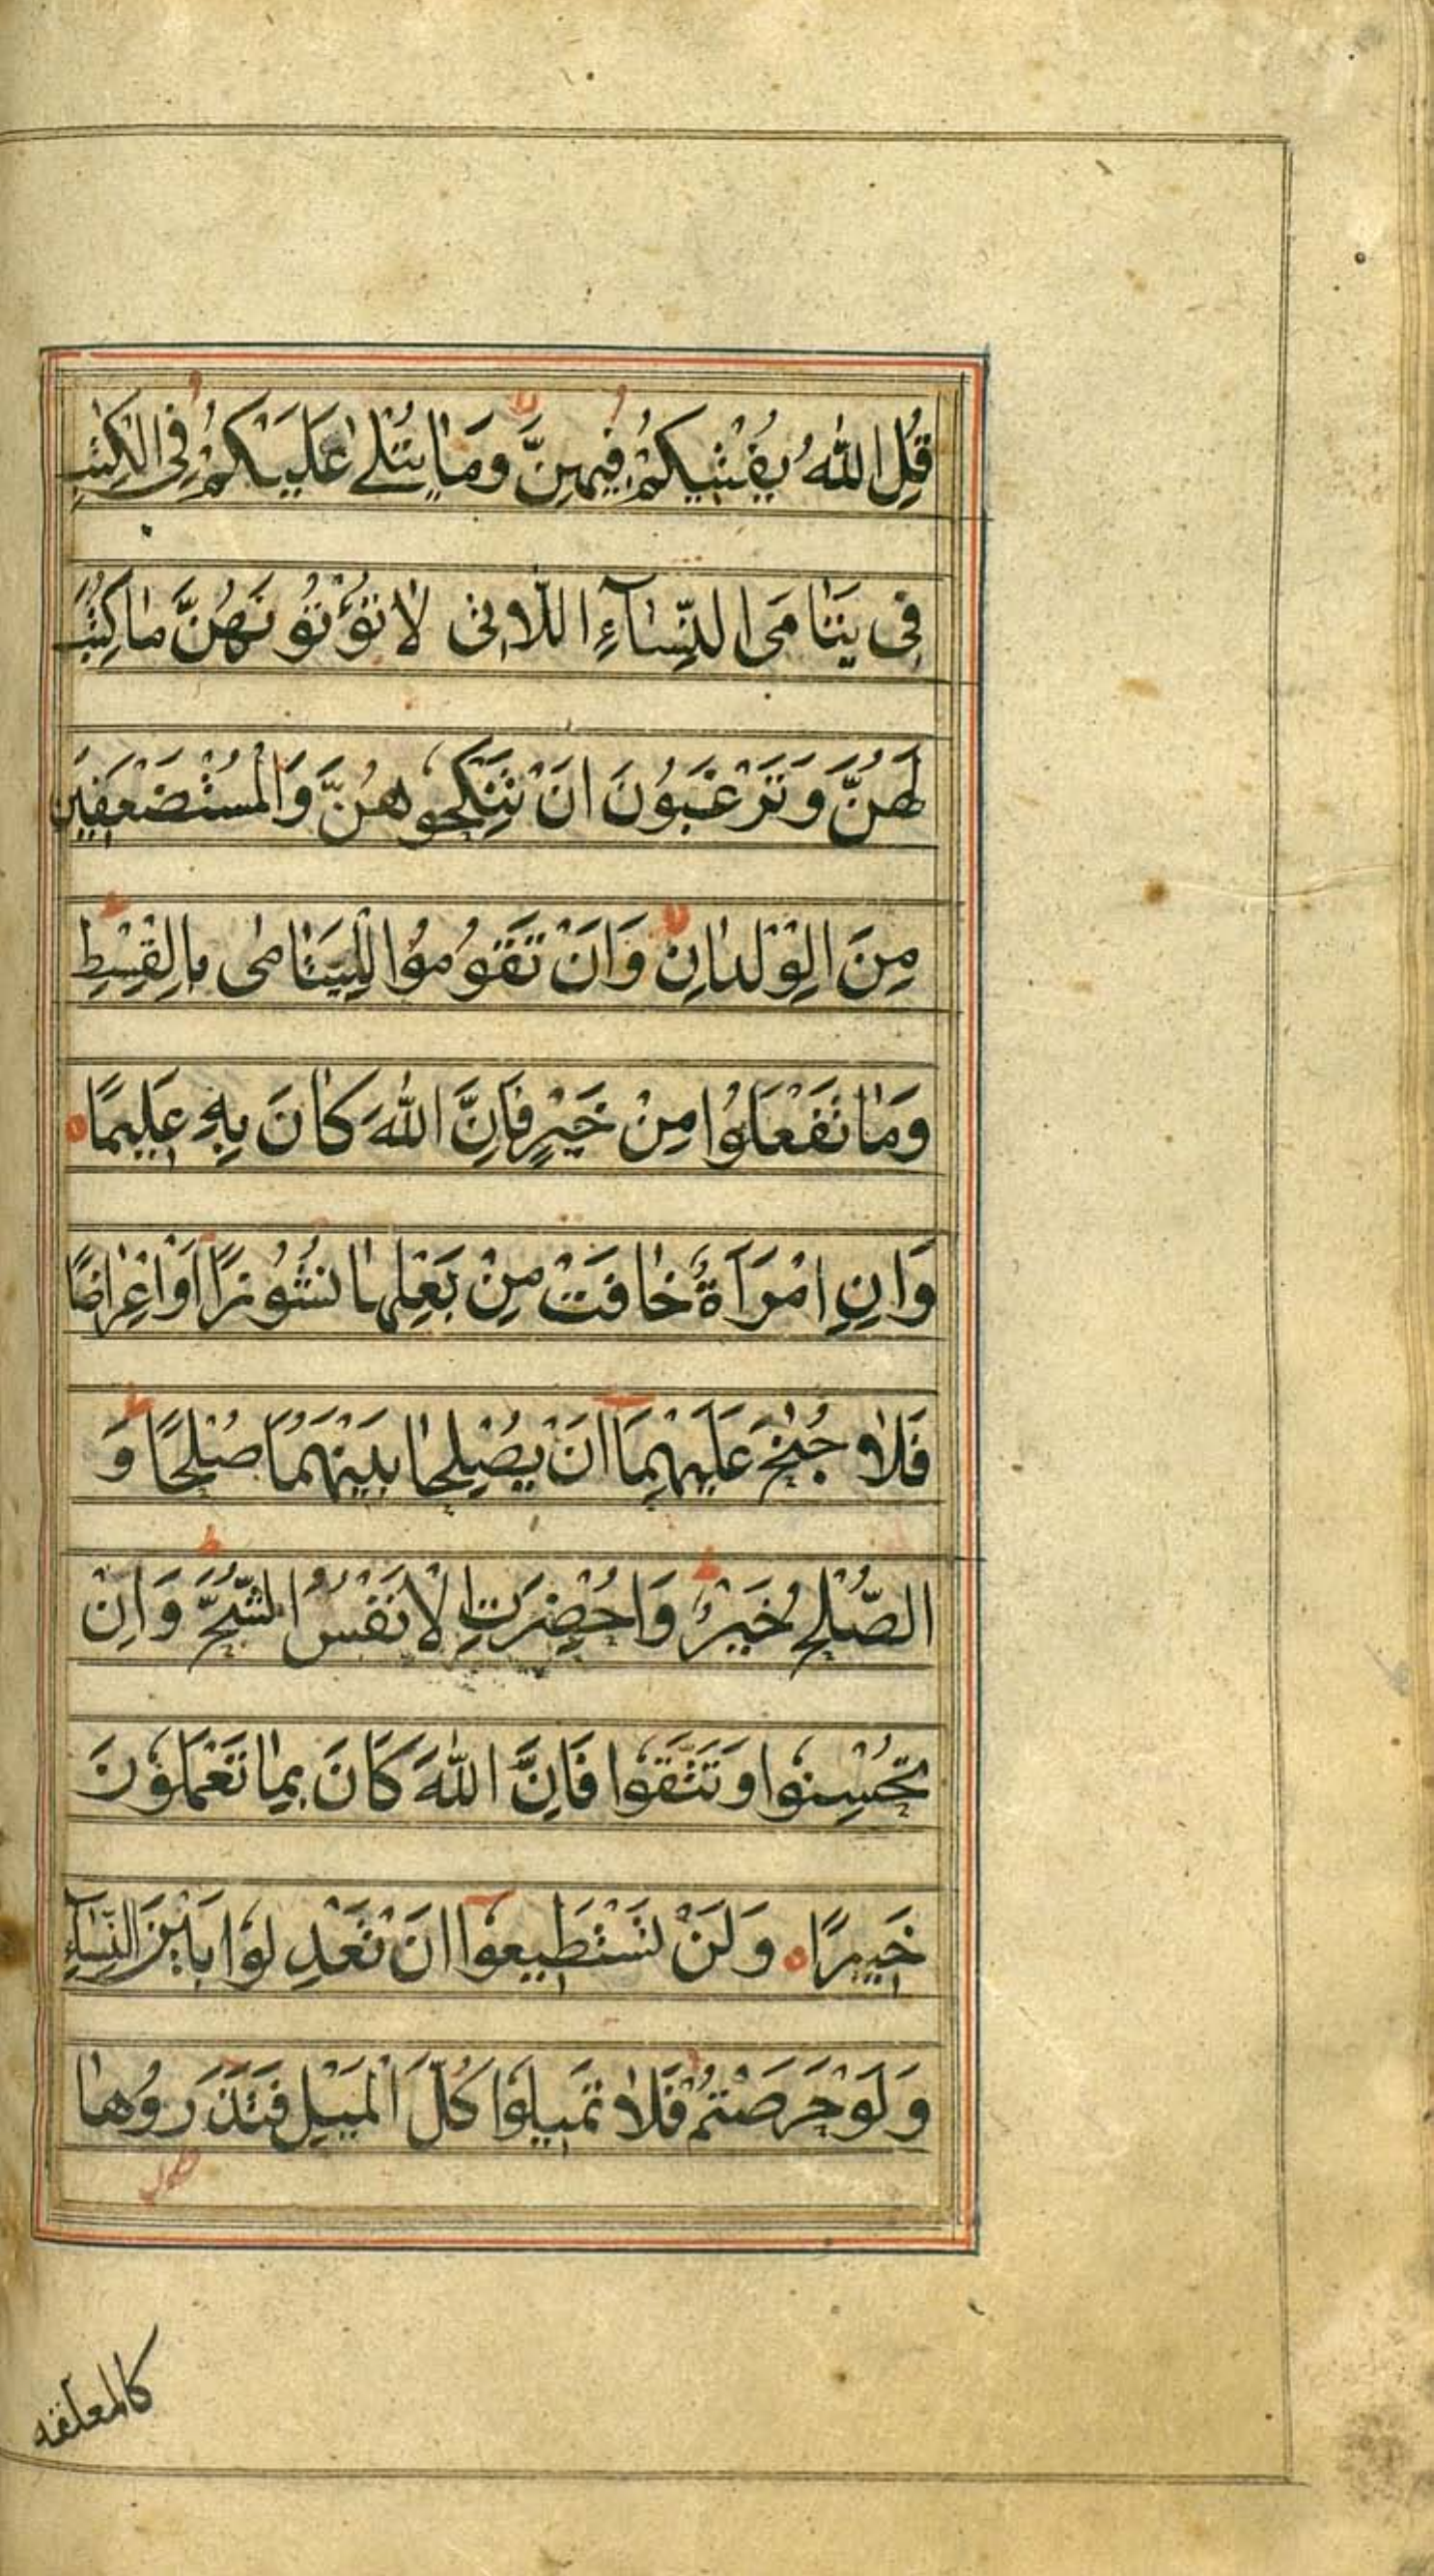 قُلِ اللّٰهُ يُفْتيكُمْ فيهِنَّ وَمَا يُتْلىٰ عَلَيْكُمْ فِى الْكِتٰبِ
فى يَتَامَى النِّسَآءِ اللَّاتى لَا تُؤْتُونَهُنَّ مَا كُتِبَ
لَهُنَّ وَتَرْغَبُونَ اَنْ تَنْكِحُوهُنَّ وَالْمُسْتَضْعَفينَ
مِنَ الْوِلْدَانِ وَاَنْ تَقُومُوا لِلْيَتَامٰى بِالْقِسْطِ
وَمَا تَفْعَلُوا مِنْ خَيْرٍ فَاِنَّ اللّٰهَ كَانَ بِهِ عَليمًا ه
وَاِنِ امْرَاَةٌ خَافَتْ مِنْ بَعْلِهَا نُشُوزًا اَوْ اِعْرَاضًا
فَلَا جُنٰحَ عَلَيْهِمَا اَنْ يُصْلِحَا بَيْنَهُمَا صُلْحًا وَ
الصُّلْحُ خَيْرٌ وَاُحْضِرَتِ الْاَنْفُسُ الشُّحَّ وَاِنْ
تُحْسِنُوا وَتَتَّقُوا فَاِنَّ اللّٰهَ كَانَ بِمَا تَعْمَلُونَ
خَبيرًا ه وَلَنْ تَسْتَطيعُوا اَنْ تَعْدِلُوا بَيْنَ النِّسَآءِ
وَلَوْ حَرَصْتُمْ فَلَا تَميلُوا كُلَّ الْمَيْلِ فَتَذَرُوهَا
كالمعلقه